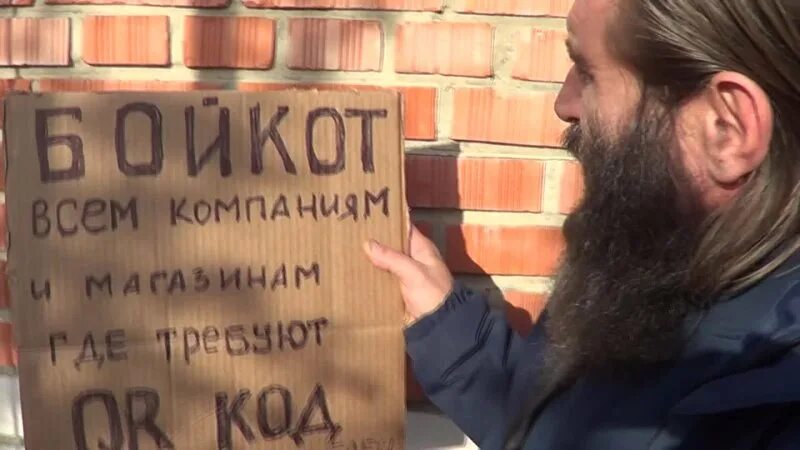 БОЙКОТ
ВСЕМ КОМПАНИЯМ
И МАГАЗИНАМ
ГДЕ ТРЕБУЮТ
QR КОД